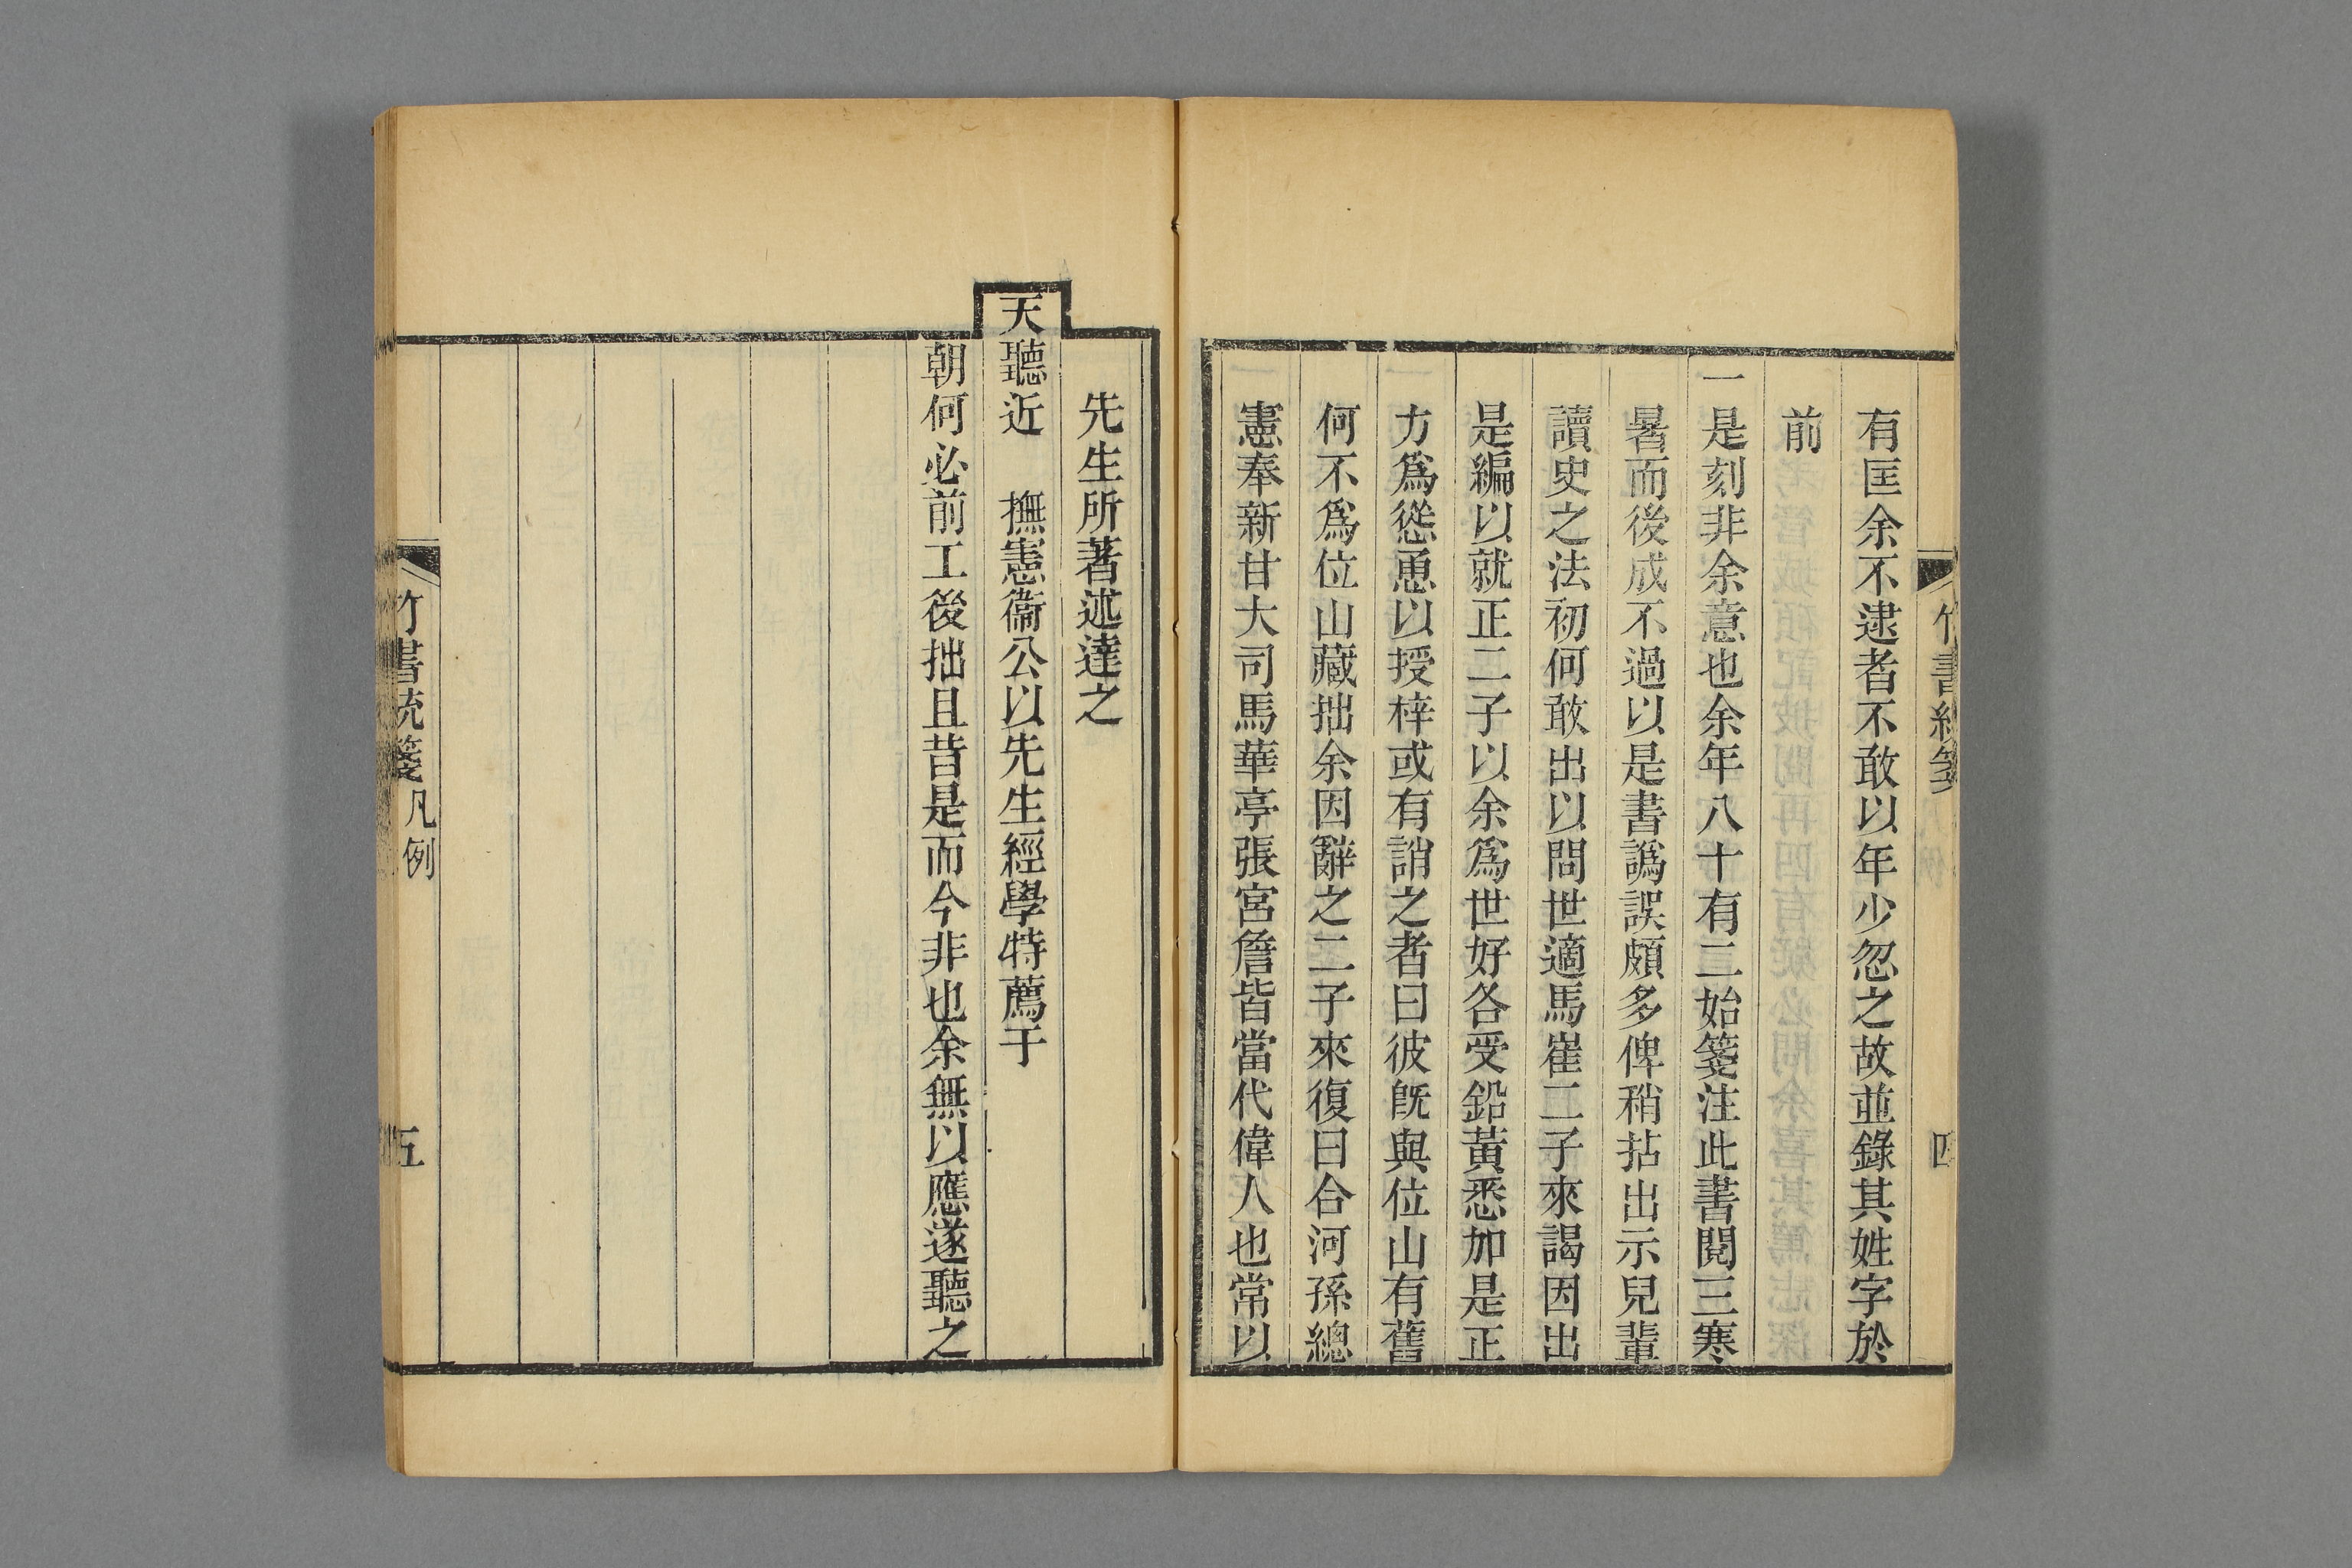 竹書統箋
四
有匡余不逮者不敢以年少忽之故並錄其姓字於
前
一是刻非余意也余年八十有二始箋注此書閱三寒
暑而後成不過以是書譌誤頗多俾稍拈出示兒輩
讀史之法初何敢出以問世適馬崔二子來謁因出
是編以就正二子以余爲世好各受鉛黃悉加是正
力爲慫恿以授梓或有誚之者曰彼旣與位山有舊
何不爲位山藏拙余因辭之二子來復曰合河孫總
憲奉新甘大司馬華亭張宮詹皆當代偉人也常以
先生所著述達之
天聽近 撫憲衞公以先生經學特薦于
朝何必前工後拙且昔是而今非也余無以應遂聽之
竹書統箋 凡例
五